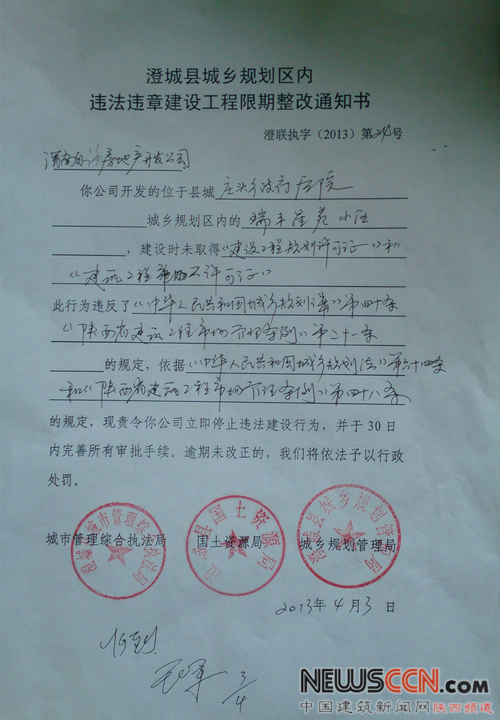 澄城县城乡规划区内
违法违章建设工程限期整改通知书
澄联执字（2013）第24号
房地产开发公司
你公司开发的位于县城 庄头乡政府后院
城乡规划区内的 瑞丰 小区
，建设时未取得《建设工程规划许可证》和
《建筑工程施工许可证》
此行为违反了《中华人民共和国城乡规划法》第四十条
《陕西省建筑工程市场管理条例》第二十一条
的规定，依据《中华人民共和国城乡规划法》第六十四条
和《陕西省建筑工程市场管理条例》第四十八条
的规定，现责令你公司立即停止违法建设行为，并于 30 日
内完善所有审批手续。逾期未改正的，我们将依法予以行政
处罚。
城市管理综合执法局 国土资源局 城乡规划管理局
澄城县国土资源局
澄城县城乡规划管理局
2013年4月3日
3/4
NEWSCCN.COM
中国建筑新闻网 陕西频道